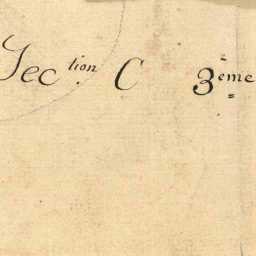 Section C 3ème